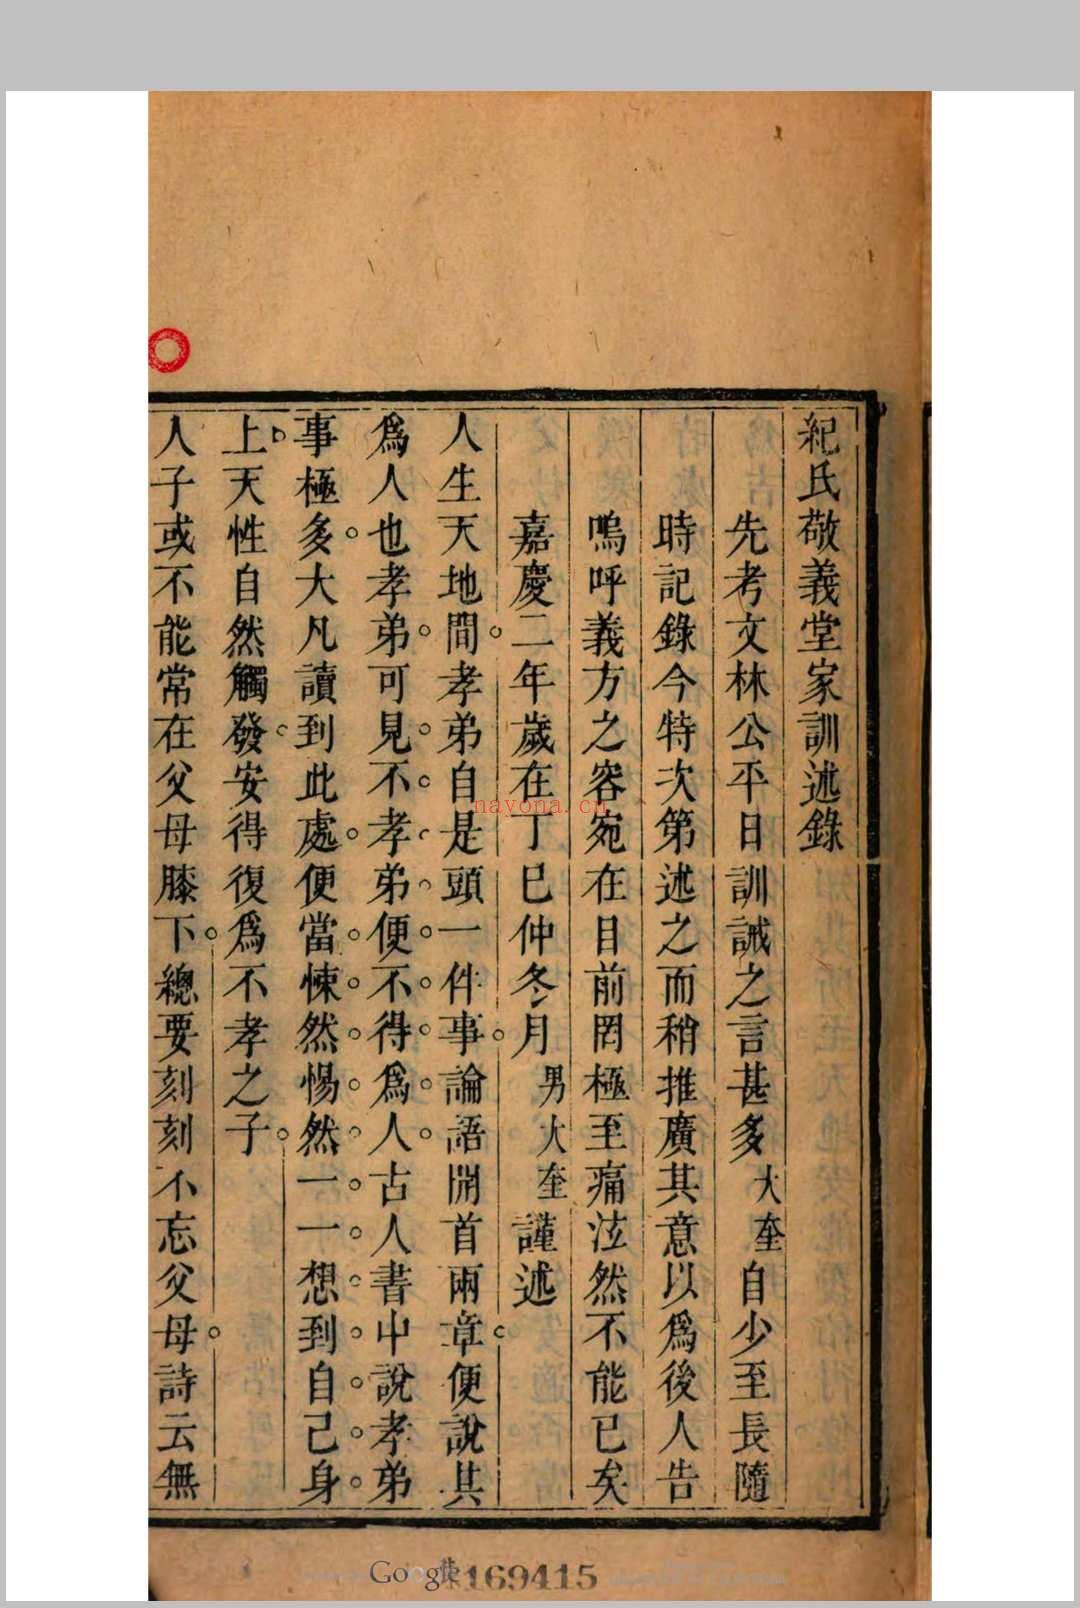 紀氏敬義堂家訓述錄
先考文林公平日訓誡之言甚多大奎自少至長隨
時記錄今特次第述之而稍推廣其意以爲後人告
嗚呼義方之容宛在目前罔極至痛泫然不能已矣
嘉慶二年歲在丁巳仲冬月男大奎謹述
人生天地間。孝弟自是頭一件事。論語開首兩章。便說其
爲人也孝弟。可見。不。孝。弟。便。不。得。爲。人。古人書中說孝弟
事極多。大凡讀到此處。便當。悚。然。惕。然。一。一。想。到。自。己。身。
上。天性自然觸發。安得復爲不孝之子。
人子或不能常在父母膝下。總要刻刻不忘父母。詩云無
nayona.cn
Google
169415